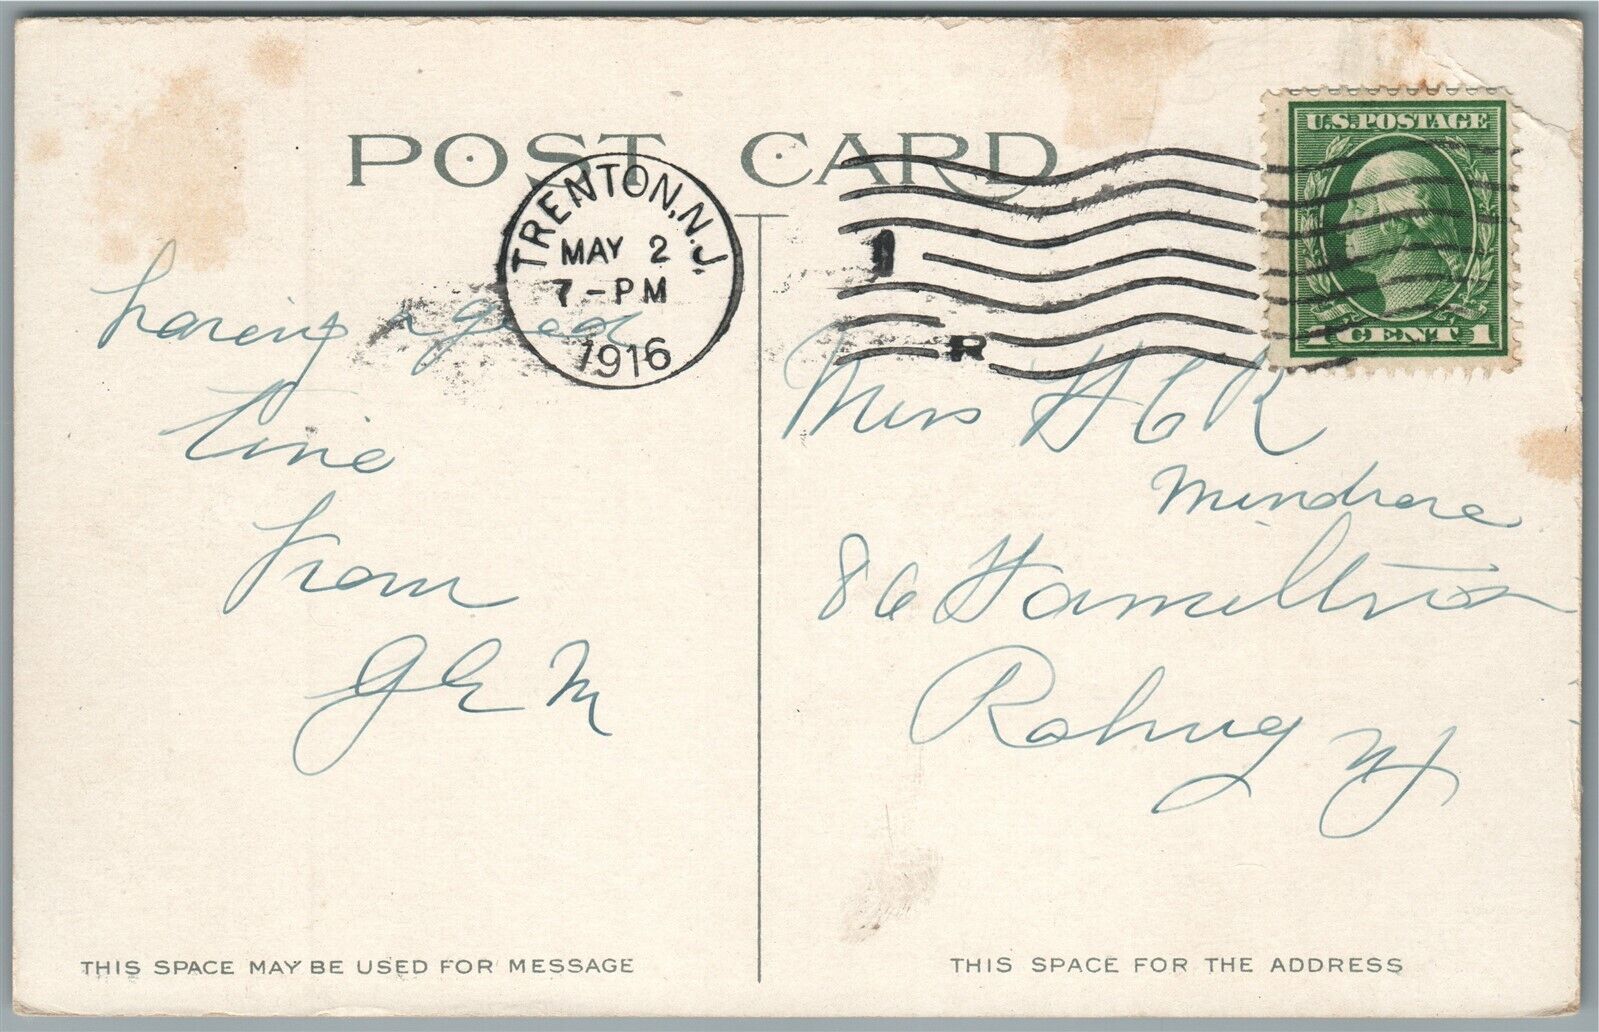 POST CARD
U.S. POSTAGE
1 CENT 1
TRENTON, N.J.
MAY 2
7-PM
1916
1
R
having a good
time
from
G E M
Miss H C R
86 Hamilton
Rahway NJ
THIS SPACE MAY BE USED FOR MESSAGE
THIS SPACE FOR THE ADDRESS